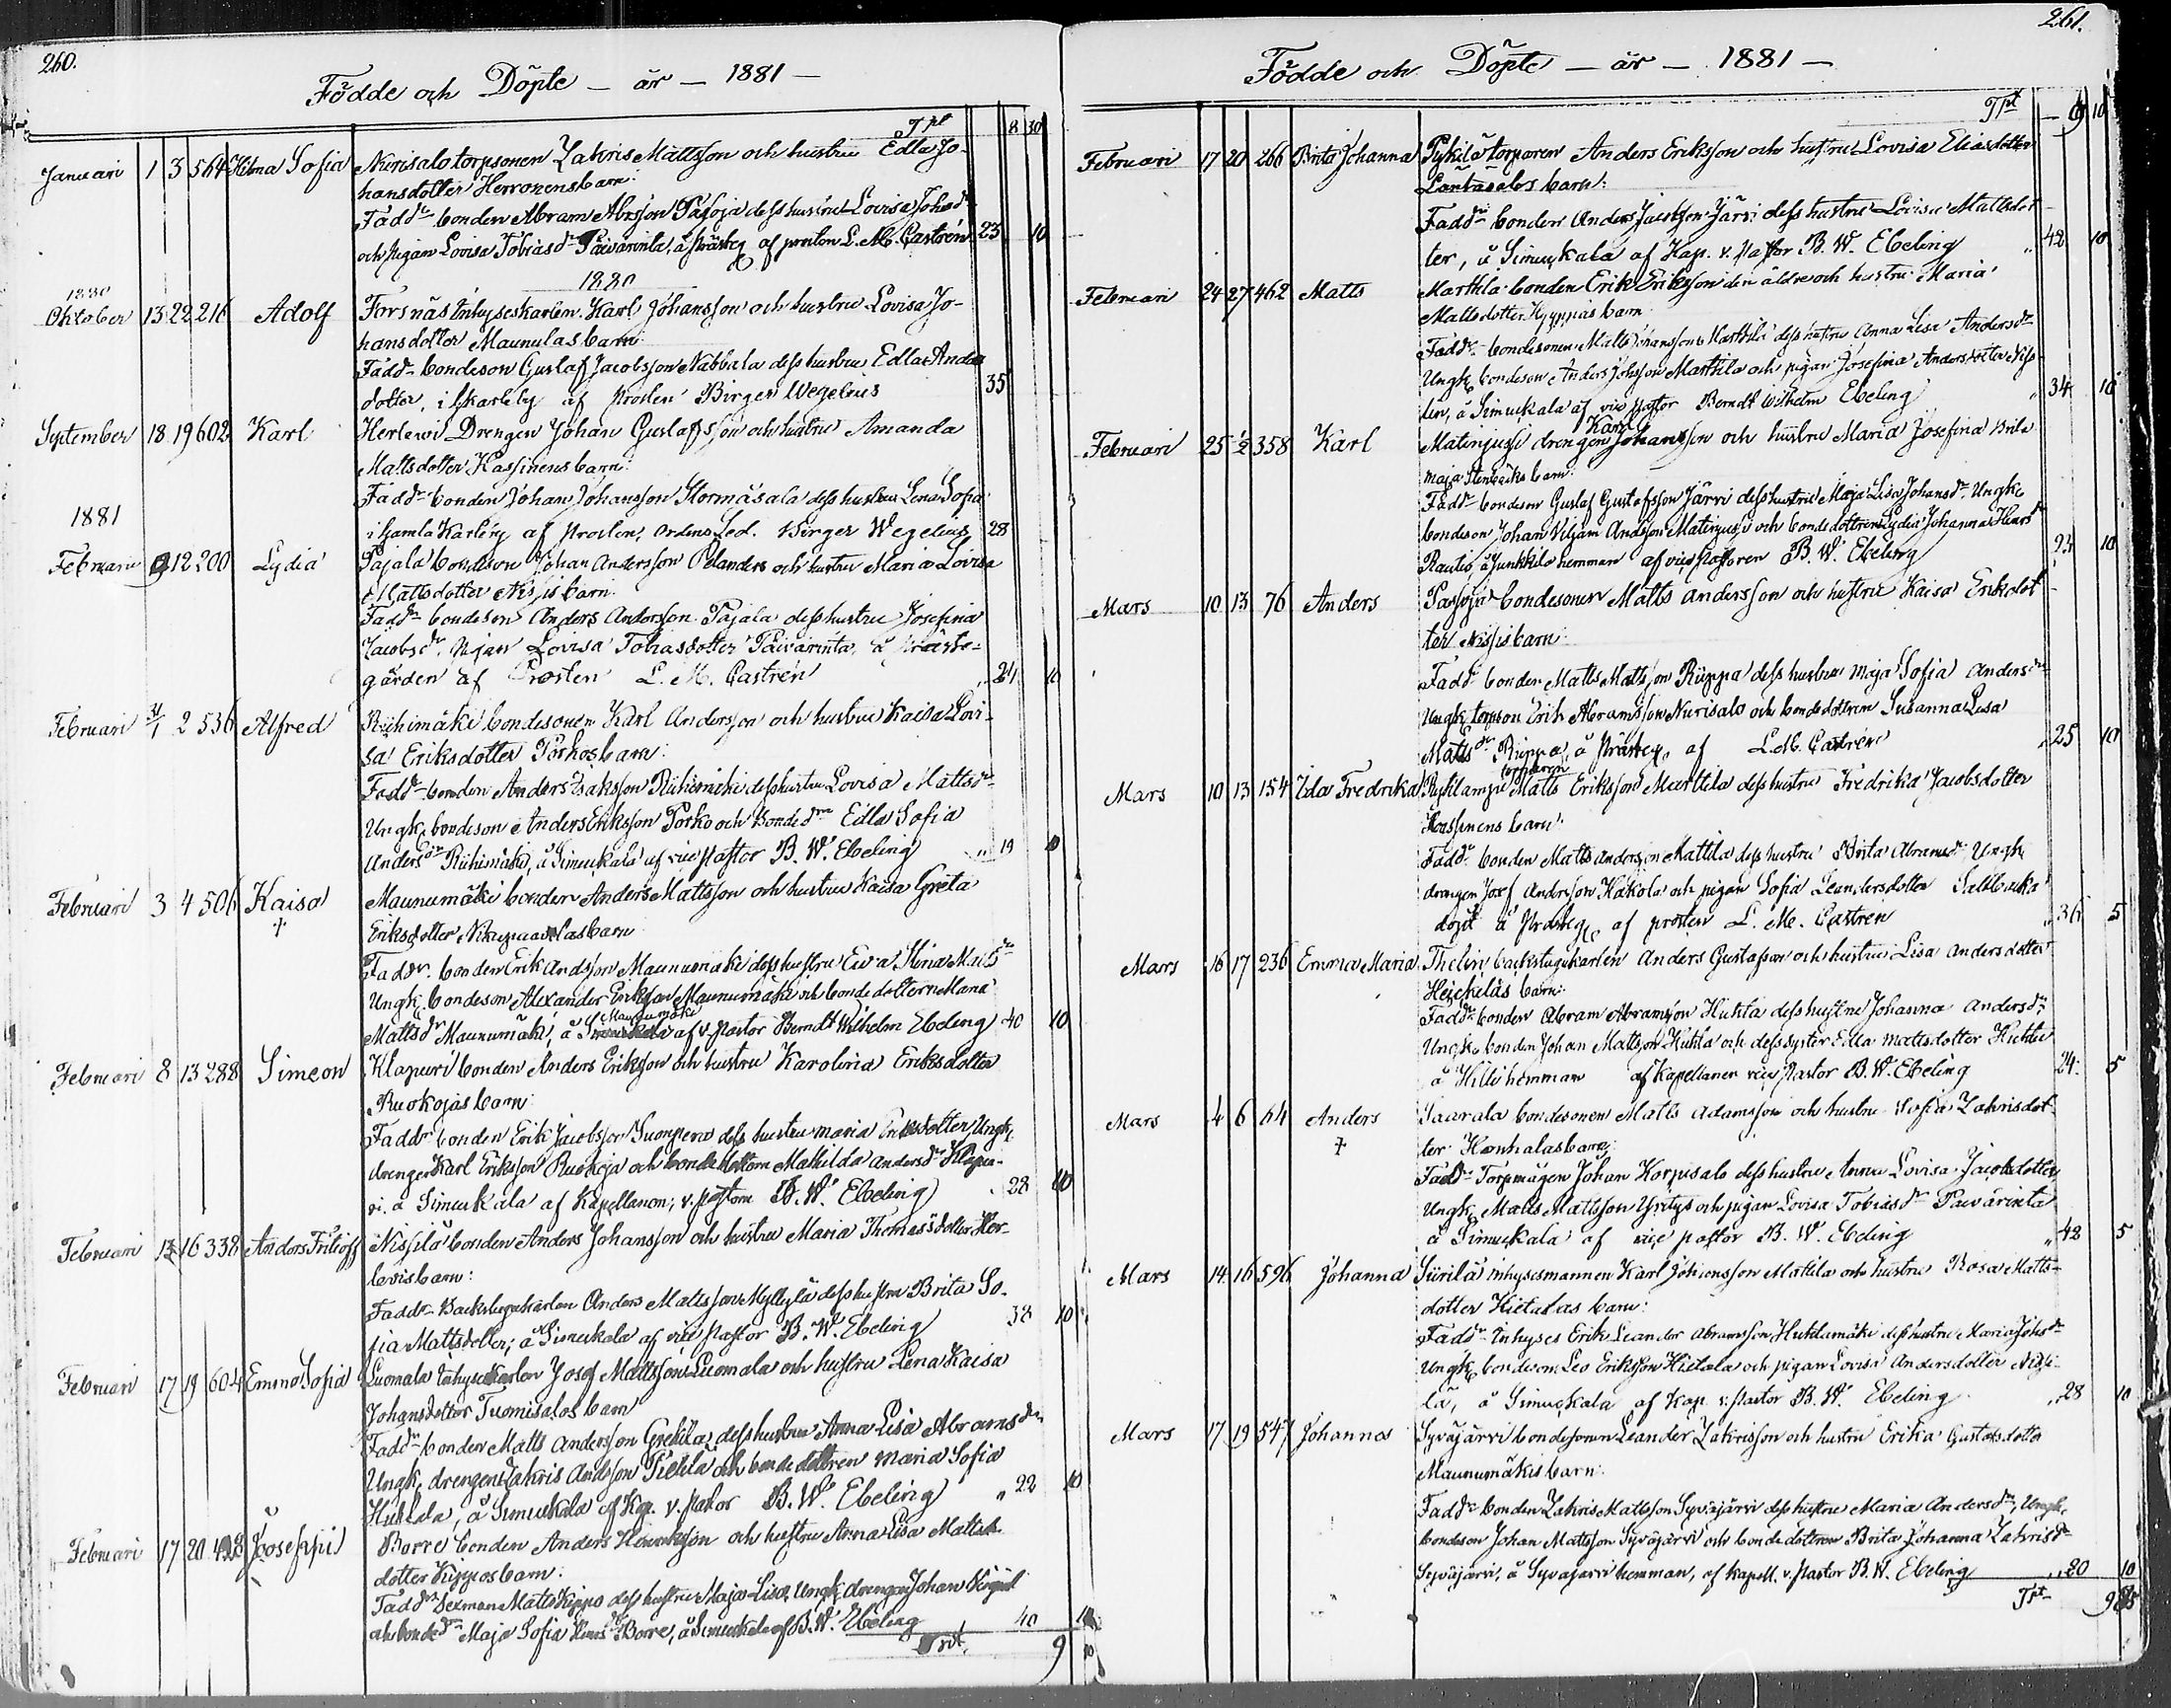 260.
Födde och Döpte — år — 1881 —
Tpt 8 30
Januari 1 3 564 Hilma Sofia Nurisalo torpsonen Zakris Mattsson och hustru Edla Jo-
hansdotter Herronens barn:
Fadd. bonden Abram Abrsson Pasoja dess hustru Lovisa Johsdr
och pigan Lovisa Tobiasdr Päivärinta, å Prästeg af prosten L. M. Castrén 23 10
1880 1880
Oktober 13 22 216 Adolf Forsnäs Inhyseskarlen Karl Johansson och hustru Lovisa Jo-
hansdotter Maunulas barn
Fadd. bondeson Gustaf Jacobsson Nabbala dess hustru Edla Anders
dotter, i Gkarleby af Prosten Birger Wegelius 35
September 18 19 602 Karl Herlewi Drengen Johan Gustafsson och hustru Amanda
Mattsdotter Kassinens barn:
Fadd. bonden Johan Johansson Stormäsala dess hustru Lena Sofia
1881 i Gamla Karleby af Prosten, Ordens Led. Birger Wegelius 28
Februari 9 12 200 Lydia Pajala bondeson Johan Andersson Pelander och hustru Maria Lovisa
Mattsdotter Nisjis barn
Fadd. bondeson Anders Andersson Pajala dess hustru Josefina
Jacobsdr, Pigan Lovisa Tobiasdotter Päivärinta, å Präste-
gården af Prosten L. M. Castrén 24 10
Februari 31/1 2 536 Alfred Riihimäki bondesonen Karl Andersson och hustru Kaisa Lovi-
sa Eriksdotter Porkos barn:
Fadd. bonden Anders Isaksson Riihimäki dess hustru Lovisa Mattsdr
Ungk. bondeson Anders Eriksson Porko och Bondedrn Edla Sofia
Andersdr Riihimäki, å Simuckala af vice Pastor B. W. Ebeling 19 10
Februari 3 4 506 Kaisa Maunumäki bonden Anders Mattsson och hustru Kaisa Greta
+ Eriksdotter barn
Fadd. bonden Erik Andsson Maunumäki dess hustru Eva Stina Mattsdr
Ungk. bondeson Alexander Eriksson Maunumäki och bondedottern Maria
Maunumäki
Mattsdr Maunumäki, å af v. Pastor Berndt Wilhelm Ebeling 40 10
Februari 8 13 288 Simeon Klapuri bonden Anders Eriksson och hustru Karolina Eriksdotter
Ruokojas barn:
Fadd. bonden Erik Jacobsson Suonpera dess hustru Maria Eriksdotter, Ungk.
drengen Karl Eriksson Ruokoja och bondedottern Mathilda Andersdr Klapu-
ri å Simuckala af Kapellanen, v. pastorn B. W. Ebeling 28 10
Februari 12 16 338 Anders Fritioff Nissilä bonden Anders Johansson och hustru Maria Thomasdotter Her-
levis barn:
Fadd. Backstugukarlen Anders Mattsson Myllylä dess hustru Brita So-
fia Mattsdotter, å Simuckala af vice Pastor B. W. Ebeling 38 10
Februari 17 19 604 Emma Sofia Luomala Inhyseskarlen Josef Mattsson Luomala och hustru Lena Kaisa
Johansdotter Tuomisalos barn
Fadd. bonden Matts Andersson Grekila dess hustru Anna Lisa Abramsdr
Ungk. drengen Zakris Andsson Pietila och bondedottren Maria Sofia
Huhtala, å Simuckala af Kap. v. Pastor B. W. Ebeling 22 10
Februari 17 20 428 Joosefpi Borre bonden Anders Henriksson och hustru Anna Lisa Matts-
dotter Kippos barn:
Fadd. Sexman Matts Kippo dess hustru Maja Lisa, Ungk. drengen Johan
och bondedr Maja Sofia Hinrsdr Borre, å Simuckala af B. W. Ebeling 40 10
9
261.
Födde och Döpte — år — 1881 —
Tpt — 9 10
Februari 17 20 266 Brita Johanna Pykilä torparen Anders Eriksson och hustru Lovisa Eliasdotter
Lantasalos barn:
Fadd. bonden Anders Jacobsson Järvi dess hustru Lovisa Mattsdot
ter, å Simuckala af Kap. v. Pastor B. W. Ebeling 42 10
Februari 24 27 462 Matts Marttila bonden Erik Eriksson den äldre och hustru Maria
Mattsdotter Hyppäs barn
Fadd. bondesonen Matts Johansson Marttila dess hustru Anna Lisa Andersdr
Ungk. bondeson Anders Johsson Marttila och pigan Josefina Andersdotter
å Simuckala af vice Pastor Berndt Wilhelm Ebeling 34 10
Karl
Februari 25 1/2 358 Karl Matinjussi drengen Johansson och hustru Maria Josefina Brita
maja Stenbäcks barn:
Fadd. bondeson Gustaf Gustafsson Järvi dess hustru Maja Lisa Johansdr. Ungk.
bondeson Johan Viljam Andsson Matinjussi och bondedottren Lydia Johanna Hinrsdr
Rautio å Junkkila hemman af vice Pastoren B. W. Ebeling 23 10
Mars 10 13 76 Anders Pasoja bondesonen Matts Andersson och hustru Kaisa Eriksdot
ter Nisjis barn:
Fadd. bonden Matts Mattsson Riippa dess hustru Maja Sofia Andersdr
Ungk. torpson Erik Abramsson Nurisalo och bondedottren Susanna Lisa
Mattsdr Riippa, å Prästeg. af L. M. Castrén 25 10
torparen
Mars 10 13 154 Ida Fredrika Pyhlampi Matts Eriksson Marttila dess hustru Fredrika Jacobsdotter
Kassinens barn:
Fadd. bonden Matts Andersson Mattila dess hustru Brita Abramsdr Ungk.
drengen Josef Andersson Kakola och pigan Sofia Leandersdotter
döpt å Prästeg. af prosten L. M. Castrén 36 5
Mars 16 17 236 Emma Maria Thelin backstugukarlen Anders Gustafsson och hustru Lisa Andersdotter
Heickiläs barn:
Fadd. bonden Abram Abramsson Huhta dess hustru Johanna Andersdr.
Ungk. bonden Johan Mattsson Huhta och dess syster Edla Mattsdotter Huhta
å Hilli hemman af Kapellanen vice Pastor B. W. Ebeling 24 5
Mars 4 6 64 Anders Saarala bondesonen Matts Adamsson och hustru Sofia Zakrisdot
+ ter Honkalas barn:
Fadd. Torpmågen Johan Korpisalo dess hustru Anna Lovisa Jacobsdotter,
Ungk. Matts Mattsson Yritys och pigan Lovisa Tobiasdr Päivärinta
å Simuckala af vice pastor B. W. Ebeling 42 5
Mars 14 16 596 Johanna Siirilä inhysesmannen Karl Johansson Mattila och hustru Rosa Matts-
dotter Hietalas barn:
Fadd. Inhyses Erik Leander Abramsson Huhtamäki dess hustru Maria Johsdr
Ungk. bondeson Leo Eriksson Hietala och pigan Lovisa Andersdotter Nissi-
lä, å Simuckala af Kap. v. Pastor B. W. Ebeling 28 10
Mars 17 19 547 Johannes Syväjärvi bondesonen Leander Zakrisson och hustru Erika Gustafsdotter
Maunumäkis barn:
Fadd. bonden Zakris Mattsson Syväjärvi dess hustru Maria Andersdr, Ungk.
bondeson Johan Mattsson Syväjärvi och bondedottren Brita Johanna Zakrisdr
Syväjärvi, å Syväjärvi hemman, af Kapell. v. Pastor B. W. Ebeling 20 10
Tpt